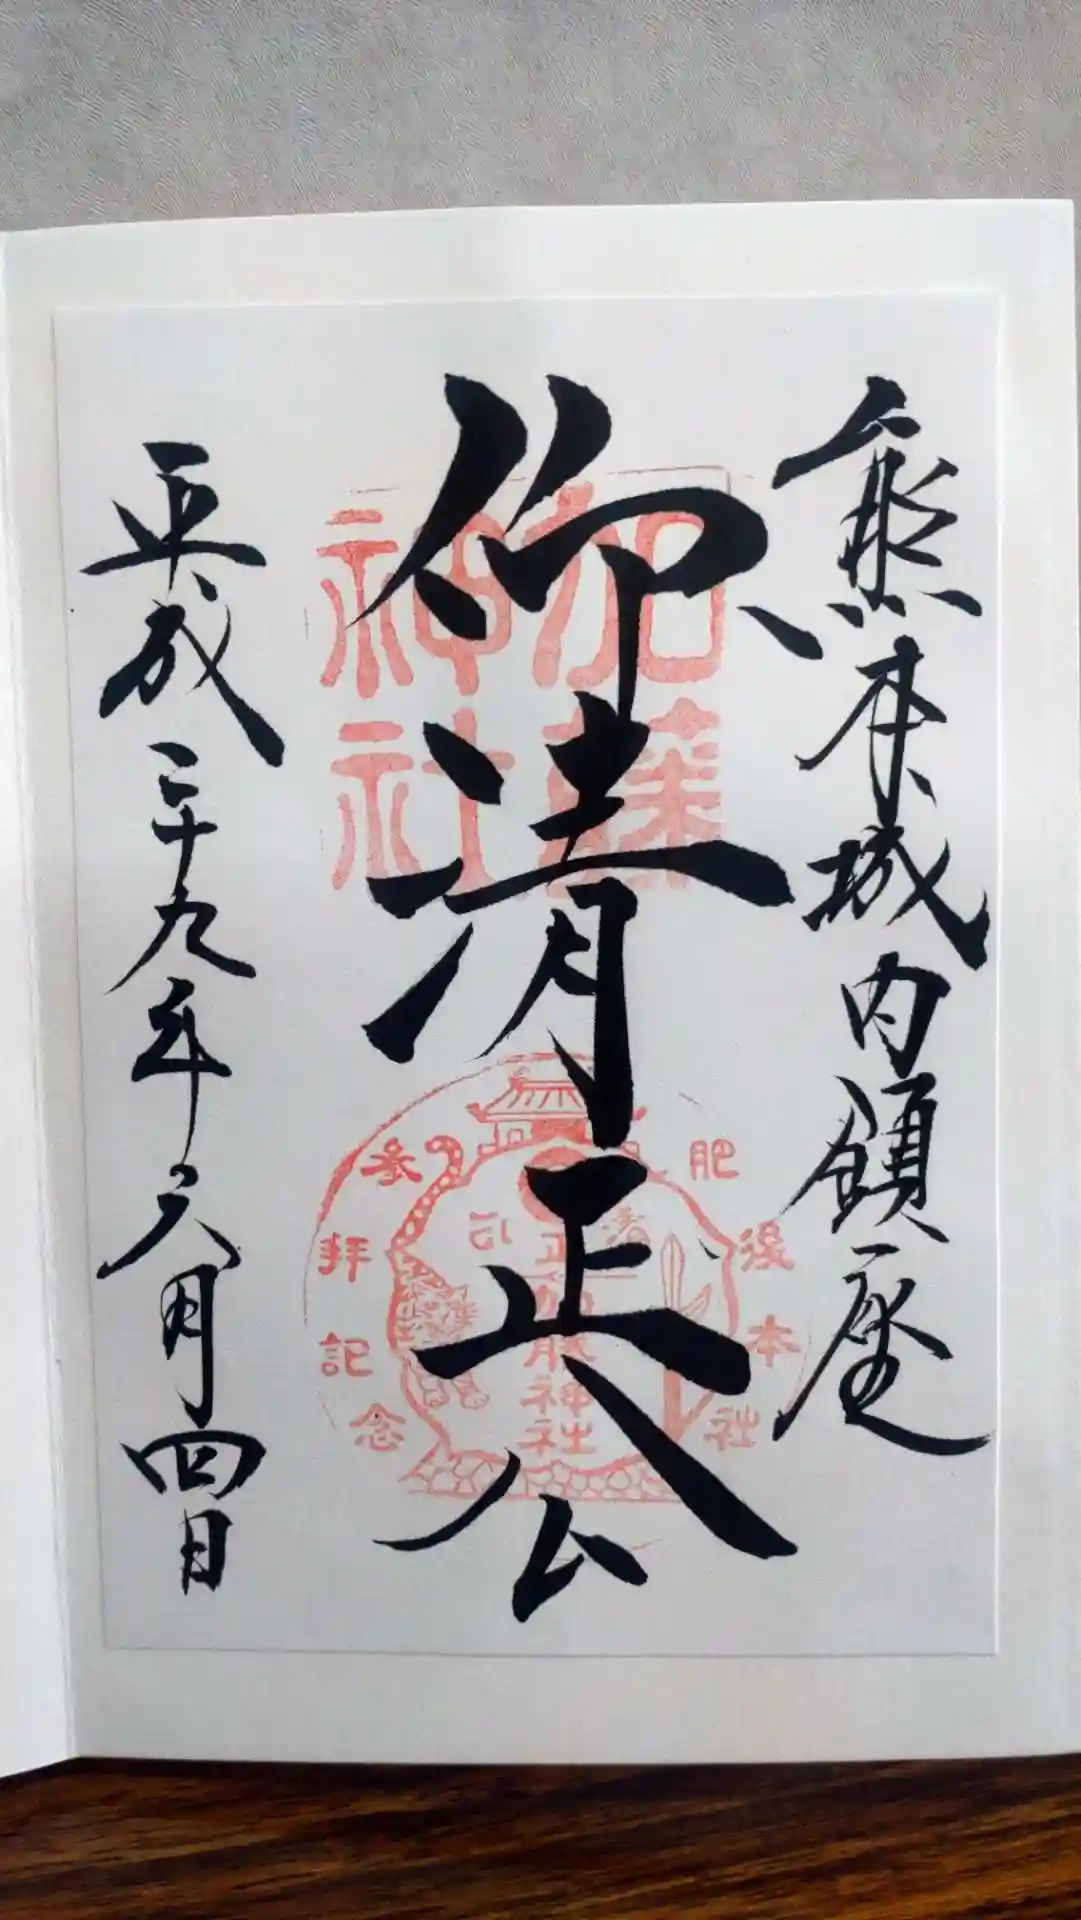 熊本城内鎮座
仰清正公
平成二十九年六月四日
加藤
神社
肥後本社
参拝記念
清正公
加藤神社